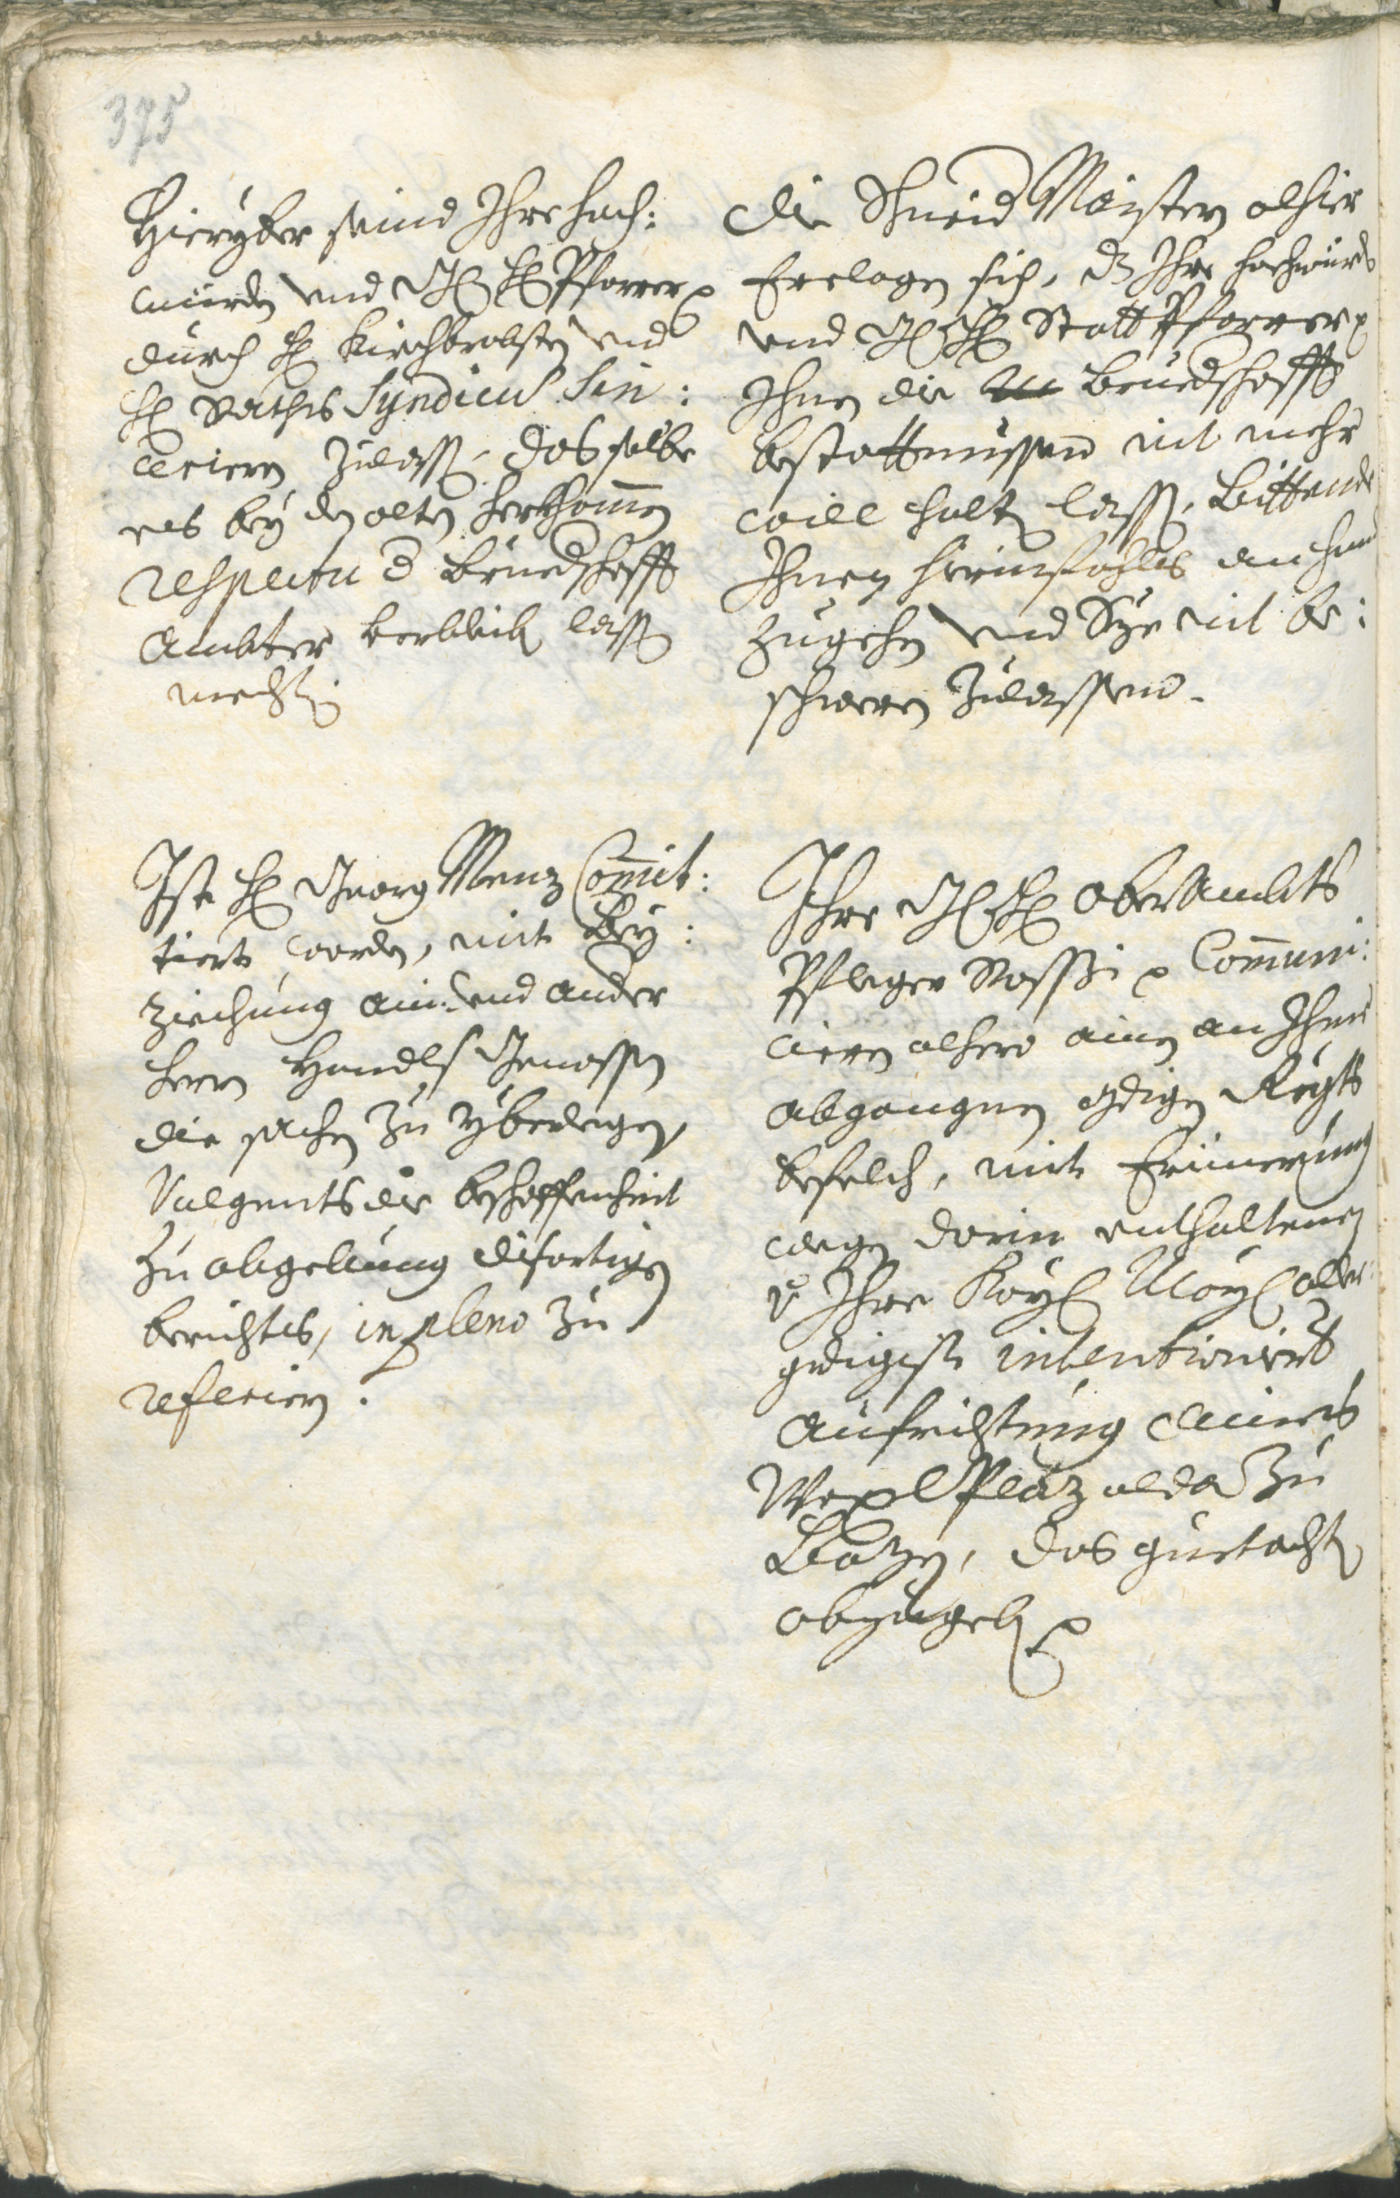 375
Hieryber seind Ihre hoch:
würden und G: H: Pfarrer
durch H: Kirchbrobsten und
H: Rathis Syndicus Sin:
cerieren zulassen, das selbe
es bey den alten herkhomen
respectu der Bruedschafft
Ambter verbleiben lassen
mechten
Die Schneid Maistern alhier
Erclagen sich, dz Ihre hochwürden
und G: H: Statt Pfarrer
Ihnen die Bruedschafft
bestattnussen nit mehr
will halten lassen, Bittende
Ihnen hierinfahls an hand
zugehen und Sye nit be:
schweren zulassen.
Ist H: Georg Menz Commit:
tiert worden, mit Bey:
ziechung ain: und ander
herrn Handls Genossen
die sachen zu yberlegen,
Volgents die beschaffenheit
zu abgebung disfertigen
berichts, in pleno zu
referiern.
Ihre G: H: Oberambts
Pfleger Rossi Communi:
cieren alhero ainen an Ihme
abgangnen gdigen Regts
befelch, mit Erinerung
wegen darin enthaltenen
v: Ihre Kay: May: aller:
gdigist intentionirt
Aufrichtung aines
Wexl Plaz alda zu
Bozen, das guetachten
abzugeben